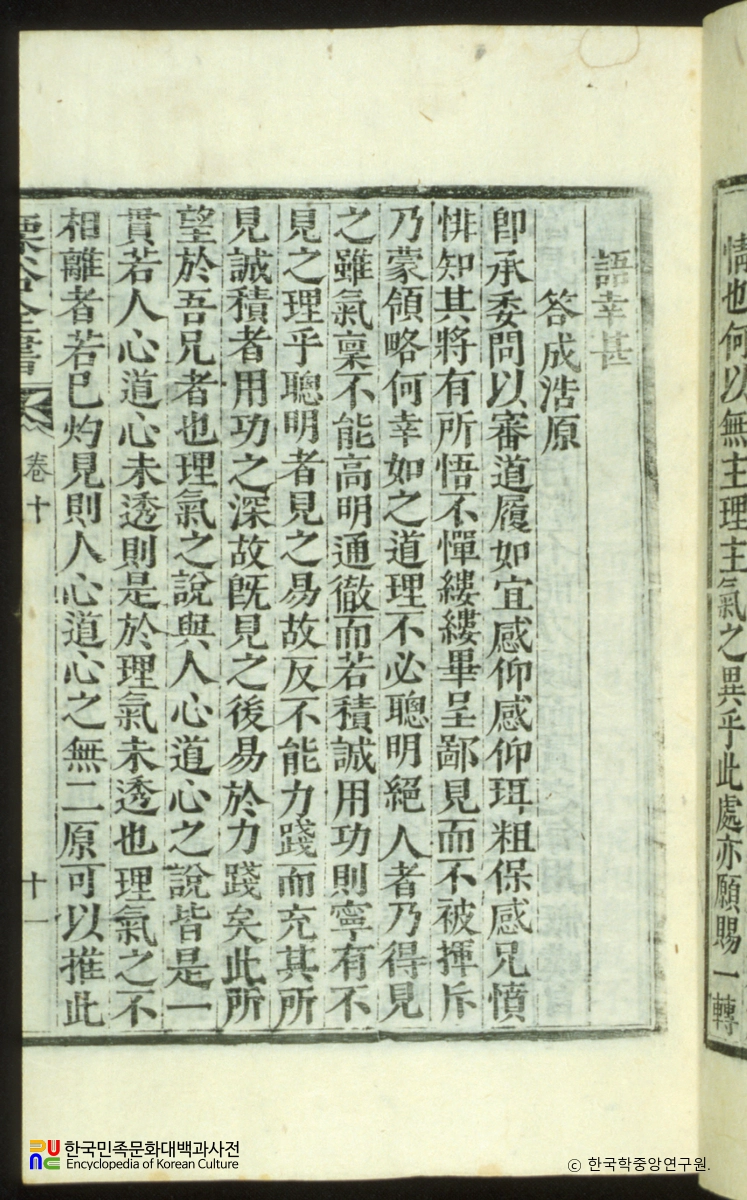 情也何以無主理主氣之異乎此處亦願賜一轉
語幸甚
答成浩原
卽承委問以審道履如宜感仰感仰珥粗保感兄憤
悱知其將有所悟不憚縷縷畢呈鄙見而不被揮斥
乃蒙領略何幸如之道理不必聰明絕人者乃得見
之雖氣稟不能高明通徹而若積誠用功則寧有不
見之理乎聰明者見之易故反不能力踐而充其所
見誠積者用功之深故旣見之後易於力踐矣此所
望於吾兄者也理氣之說與人心道心之說皆是一
貫若人心道心未透則是於理氣未透也理氣之不
相離者若已灼見則人心道心之無二原可以推此
栗谷全書 卷十 十一
한국민족문화대백과사전
Encyclopedia of Korean Culture
© 한국학중앙연구원.